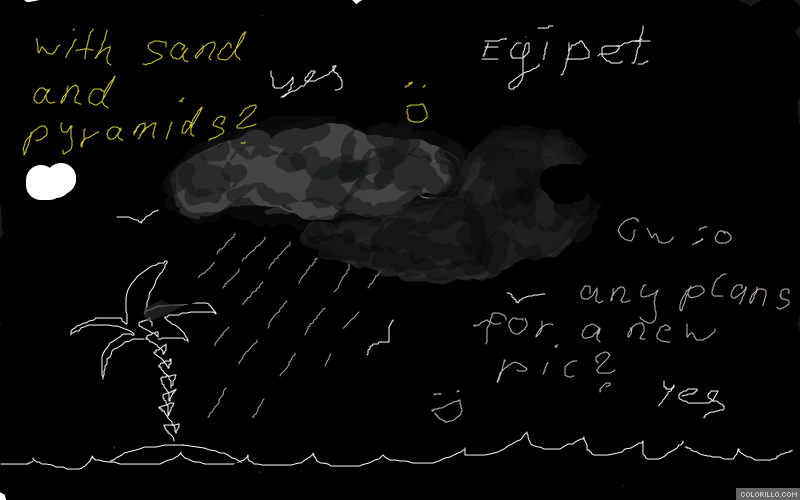 with sand
and
pyramids?
yes
Egipet
any plans
for a new
pic?
yes
COLORILLO.COM